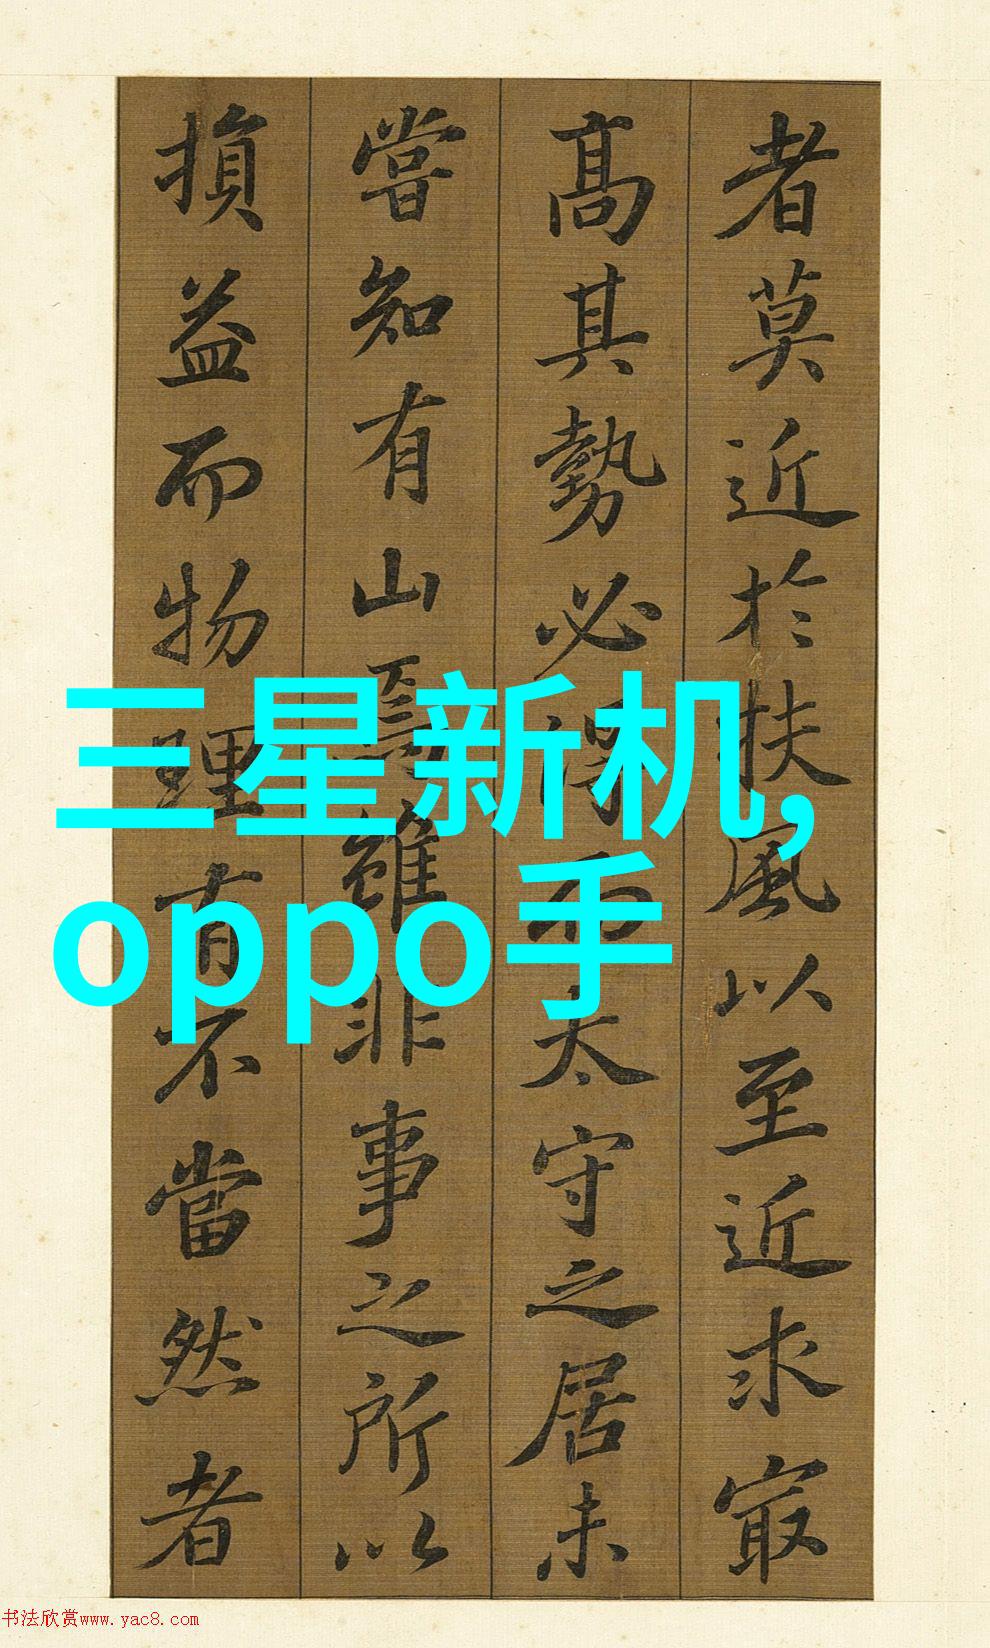 者莫近於扶風以至近求㝡
髙其勢必得而太守之居未
嘗知有山焉雖非事之所以
損益而物理有不當然者
三星新机,
oppo手
书法欣赏www.yac8.com